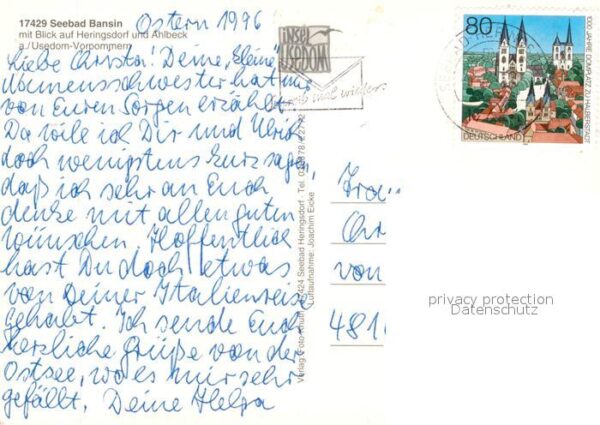 Ostern 1996
17429 Seebad Bansin
mit Blick auf Heringsdorf und Ahlbeck
a./Usedom-Vorpommern
Liebe Christa! Deine "kleine"
Namensschwester hat mir
von Euren Sorgen erzählt.
Da will ich Dir und Ulrich
doch wenigstens kurz sagen,
daß ich sehr an Euch
denke mit allen guten
Wünschen. Hoffentlich
hast Du doch etwas
von Deiner Italienreise
gehabt. Ich sende Euch
herzliche Grüße von der
Ostsee, wo es mir sehr
gefällt. Deine Helga
insel
USEDOM
mal wieder
Seebad Heringsdorf - Tel.
Luftaufnahme: Joachim Eicke
80
1000 JAHRE DOMPLATZ ZU HALBERSTADT
DEUTSCHLAND
Frau
Chr
von
481
privacy protection
Datenschutz